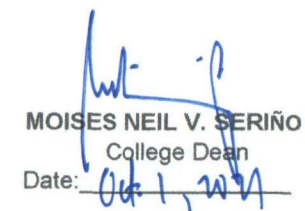 MOISES NEIL V. SERIÑO
College Dean
Date: Oct. 1, 2021